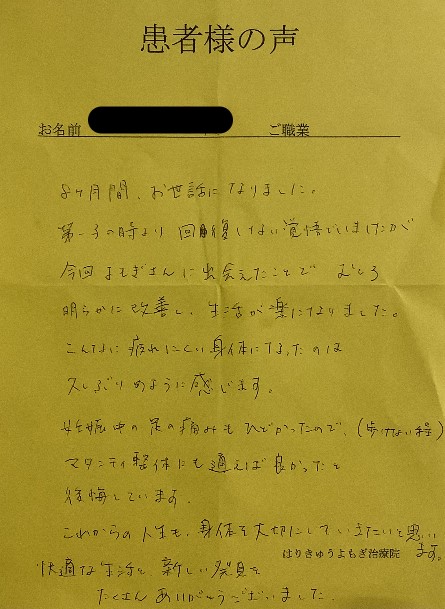 患者様の声
お名前 ご職業
8ヶ月間、お世話になりました。
第一子の時より回復しない覚悟でいましたが
今回よもぎさんに出会えたことで むしろ
明らかに改善し、生活が楽になりました。
こんなに疲れにくい身体になったのは
久しぶりのように感じます。
妊娠中の足の痛みもひどかったので、(歩けない程)
マタニティ整体にも通えば良かったと
後悔しています。
これからの人生も、身体を大切にしていきたいと思います。
はりきゅうよもぎ治療院
快適な生活と、新しい発見を
たくさんありがとうございました。